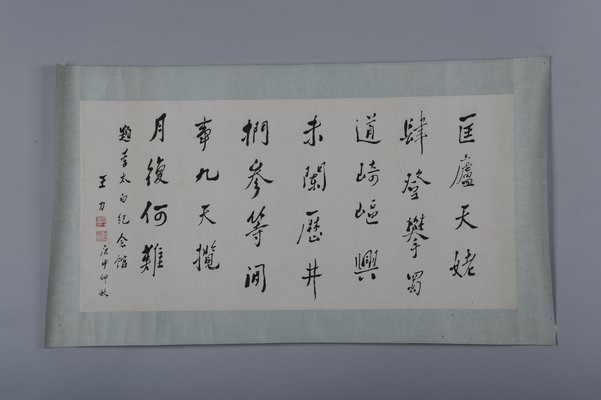 匡廬天姥
肆登攀蜀
道崎嶇興
未闌歷井
捫參等閒
事九天攬
月復何難
題李太白纪念馆
王力
庚申仲秋